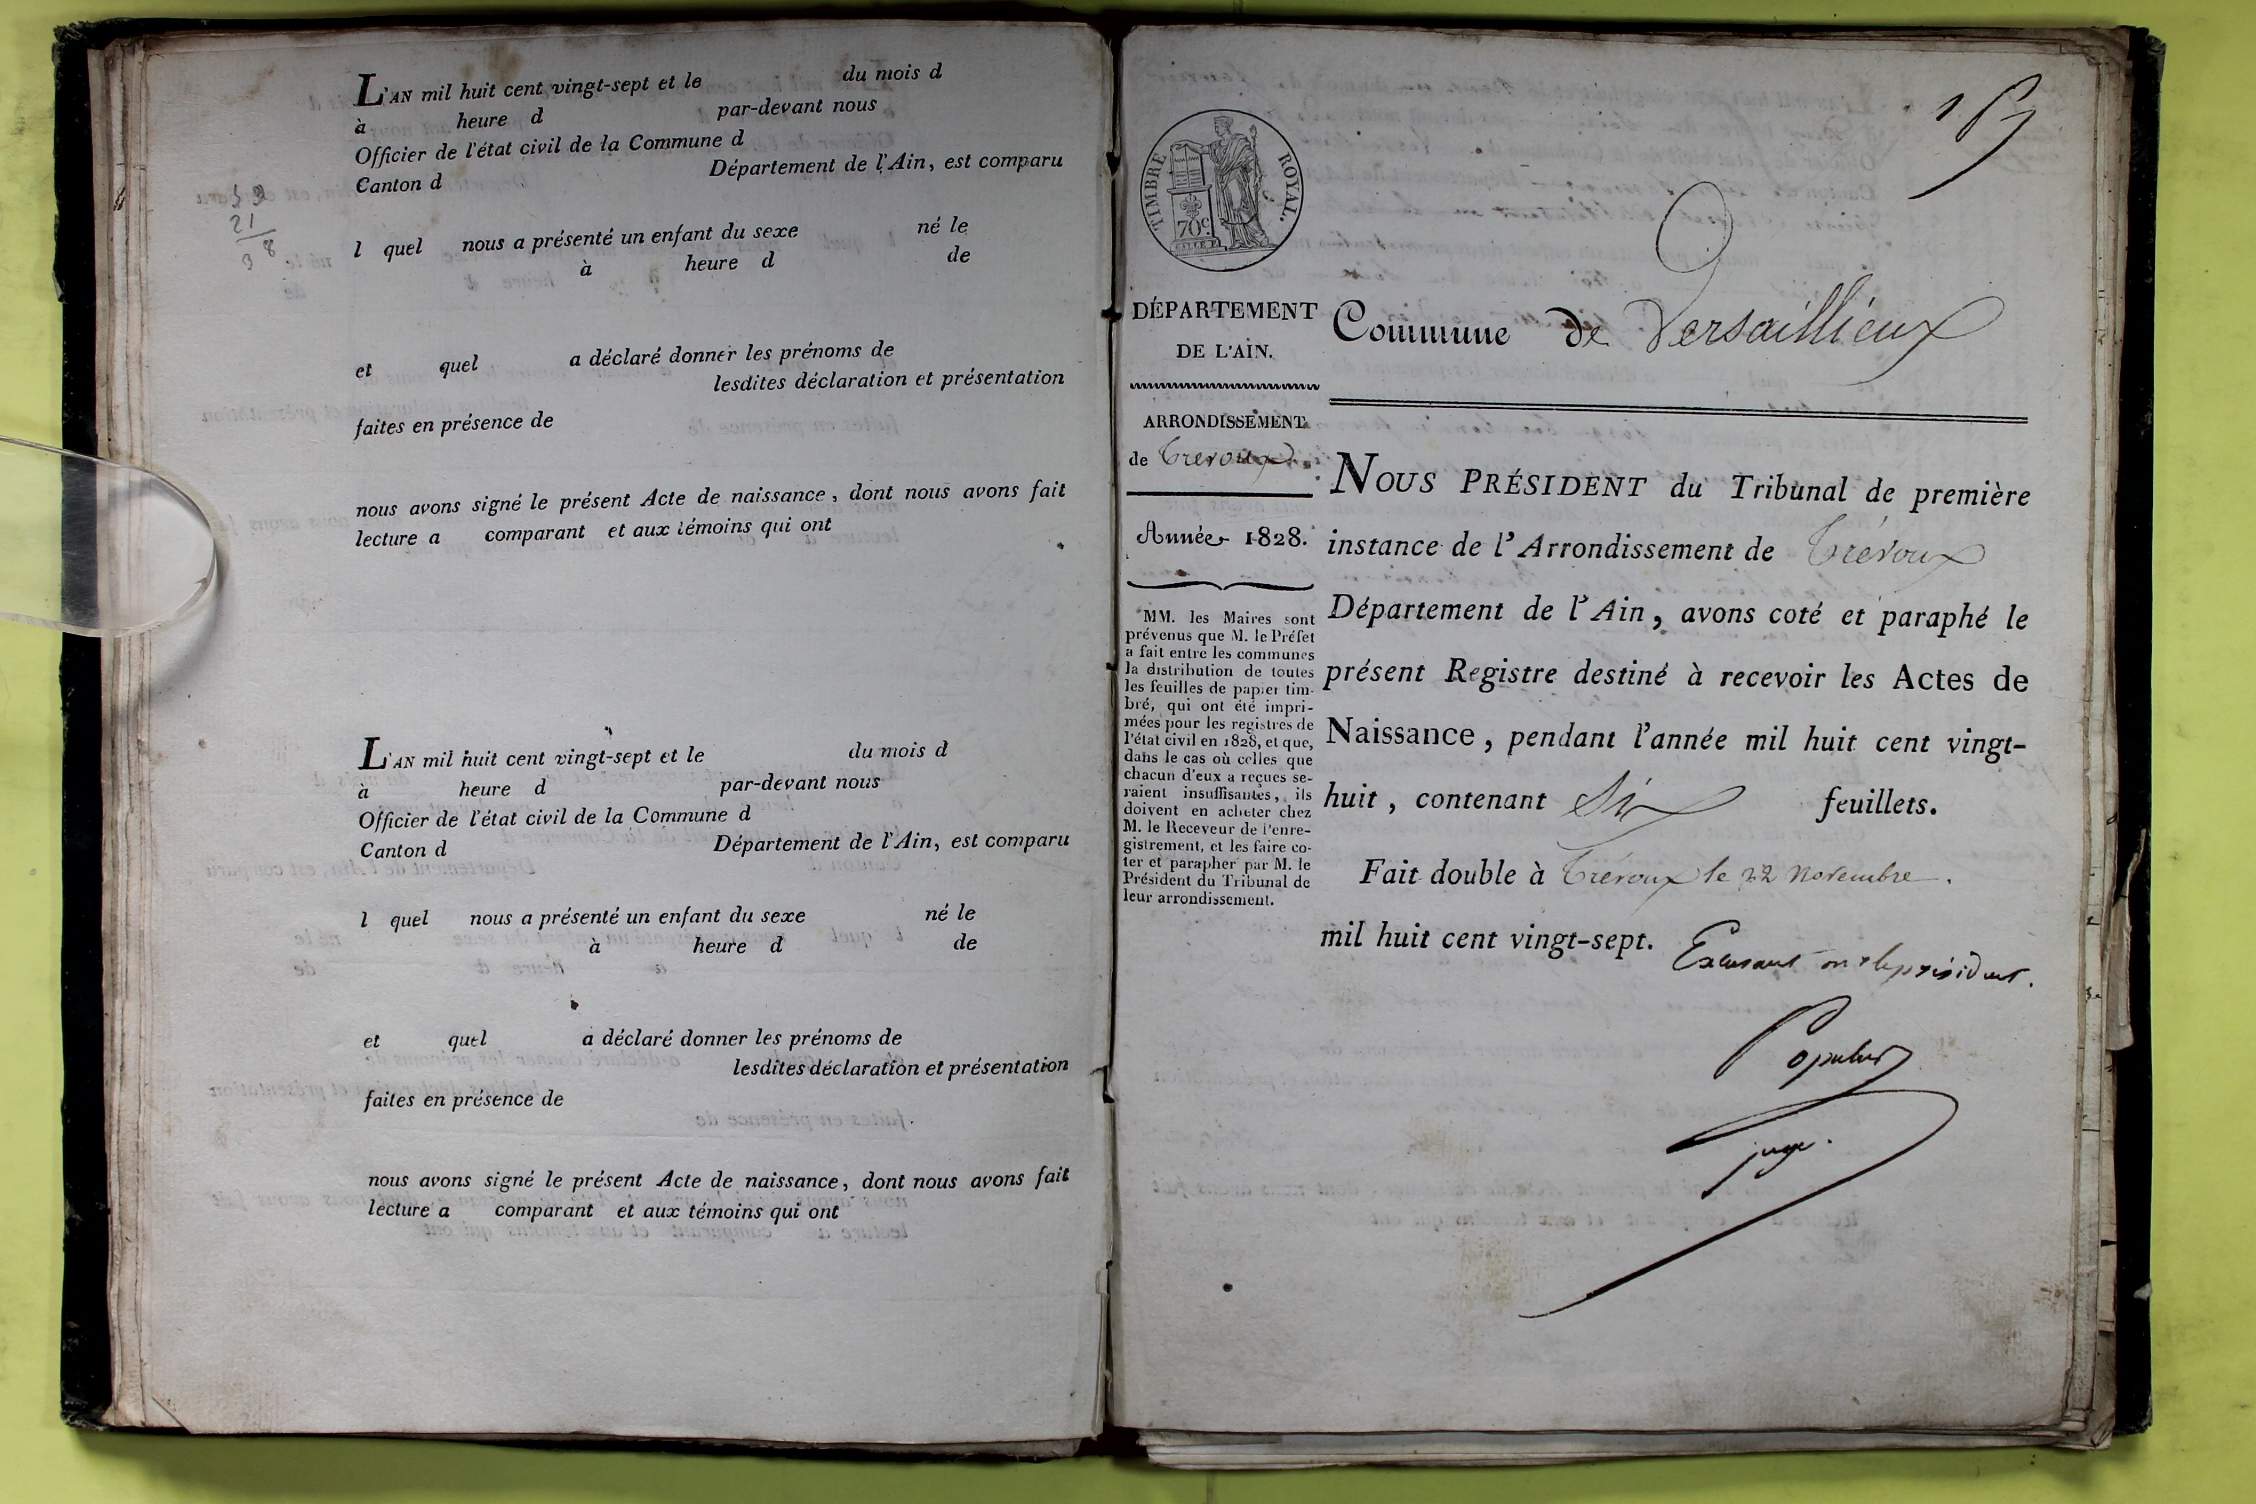 L'AN mil huit cent vingt-sept et le du mois d
à heure d par-devant nous
Officier de l'état civil de la Commune d
Canton d Département de l'Ain, est comparu
l quel nous a présenté un enfant du sexe né le
à heure d de
et quel a déclaré donner les prénoms de
lesdites déclaration et présentation
faites en présence de
nous avons signé le présent Acte de naissance, dont nous avons fait
lecture a comparant et aux témoins qui ont
21
L'AN mil huit cent vingt-sept et le du mois d
à heure d par-devant nous
Officier de l'état civil de la Commune d
Canton d Département de l'Ain, est comparu
l quel nous a présenté un enfant du sexe né le
à heure d de
et quel a déclaré donner les prénoms de
lesdites déclaration et présentation
faites en présence de
nous avons signé le présent Acte de naissance, dont nous avons fait
lecture a comparant et aux témoins qui ont
TIMBRE ROYAL.
70c.
DÉPARTEMENT
DE L'AIN.
ARRONDISSEMENT
de Trevoux
Année 1828.
MM. les Maires sont
prévenus que M. le Préfet
a fait entre les communes
la distribution de toutes
les feuilles de papier tim-
bré, qui ont été impri-
mées pour les registres de
l'état civil en 1828, et que,
dans le cas où celles que
chacun d'eux a reçues se-
raient insuffisantes, ils
doivent en acheter chez
M. le Receveur de l'enre-
gistrement, et les faire co-
ter et parapher par M. le
Président du Tribunal de
leur arrondissement.
Commune de Versaillieux
NOUS PRÉSIDENT du Tribunal de première
instance de l'Arrondissement de Trévoux
Département de l'Ain, avons coté et paraphé le
présent Registre destiné à recevoir les Actes de
Naissance, pendant l'année mil huit cent vingt-
huit, contenant Six feuillets.
Fait double à Trévoux le 22 Novembre.
mil huit cent vingt-sept.
président.
Populus
juge.